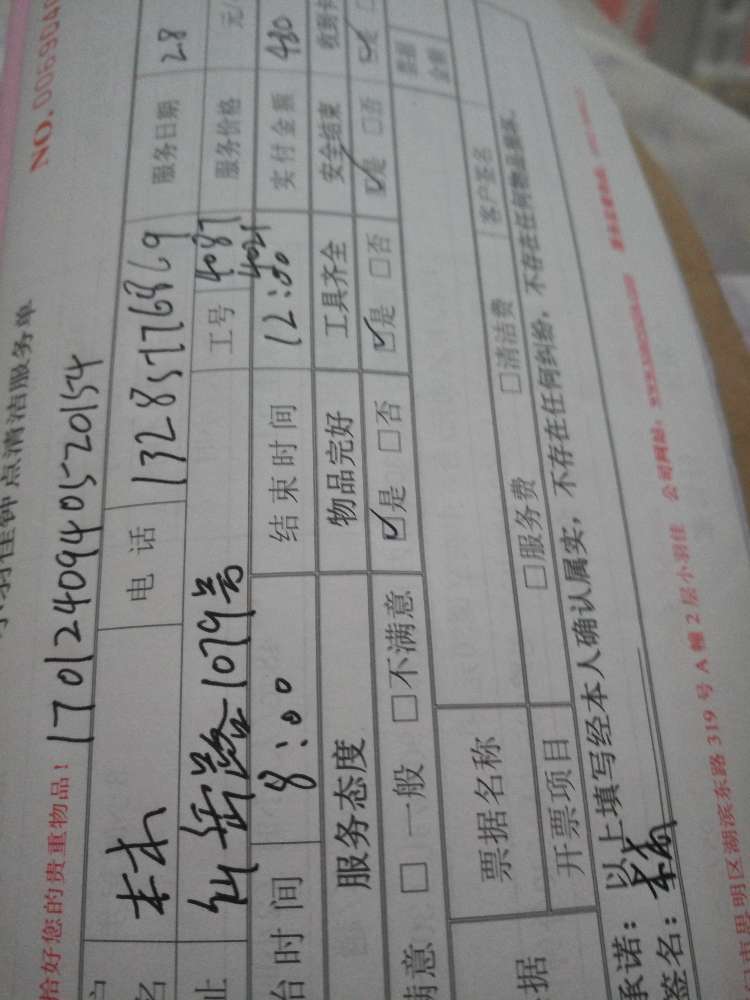 钟点清洁服务单
拾好您的贵重物品! 17012409940520154 NO.00690
名 本本 电话 13285776869 服务日期 28
址 路1079号 工号 4087 4021 服务价格 元/
台时间 8:00 结束时间 12:00 实付金额 480
服务态度 物品完好 工具齐全 安全结束 收到
满意 □一般 □不满意 ☑是 □否 ☑是 □否 ☑是 □否
据 票据名称 票据金额
开票项目 □服务费 □清洁费 客户签名
承诺: 以上填写经本人确认属实, 不存在任何纠纷, 不存在任何物品损坏。
签名:
市思明区湖滨东路 319 号 A 幢 2 层小羽佳 公司网站: